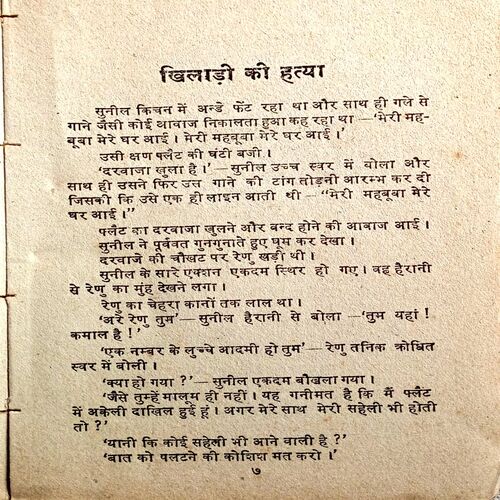 खिलाड़ी की हत्या
सुनील किचन में अन्डे फेंट रहा था और साथ ही गले से
गाने जैसी कोई आवाज निकालता हुआ कह रहा था—'मेरी मह-
बूबा मेरे घर आई । मेरी महबूबा मेरे घर आई ।'
उसी क्षण फ्लैट की घंटी बजी ।
'दरवाजा खुला है ।'—सुनील उच्च स्वर में बोला और
साथ ही उसने फिर उस गाने की टांग तोड़नी आरम्भ कर दी
जिसकी कि उसे एक ही लाइन आती थी—"मेरी महबूबा मेरे
घर आई ।"
फ्लैट का दरवाजा खुलने और बन्द होने की आवाज आई ।
सुनील ने पूर्ववत गुनगुनाते हुए घूम कर देखा ।
दरवाजे की चौखट पर रेणु खड़ी थी ।
सुनील के सारे एक्शन एकदम स्थिर हो गए । वह हैरानी
से रेणु का मुंह देखने लगा ।
रेणु का चेहरा कानों तक लाल था ।
'अरे रेणु तुम'—सुनील हैरानी से बोला—'तुम यहां !
कमाल है !'
'एक नम्बर के लुच्चे आदमी हो तुम'—रेणु तनिक क्रोधित
स्वर में बोली ।
'क्या हो गया ?'—सुनील एकदम बौखला गया ।
'जैसे तुम्हें मालूम ही नहीं । यह गनीमत है कि मैं फ्लैट
में अकेली दाखिल हुई हूं । अगर मेरे साथ मेरी सहेली भी होती
तो ?'
'यानी कि कोई सहेली भी आने वाली है ?'
'बात को पलटने की कोशिश मत करो ।'
७